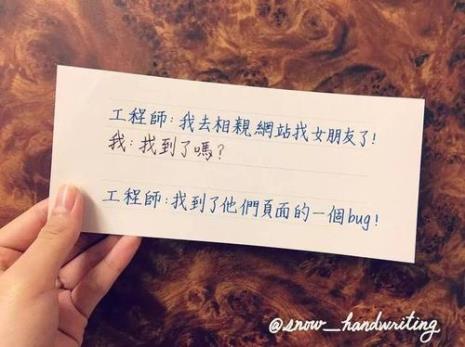 工程師:我去相親網站找女朋友了!
我:找到了嗎?
工程師:找到了他們頁面的一個bug!
@snow_handwriting